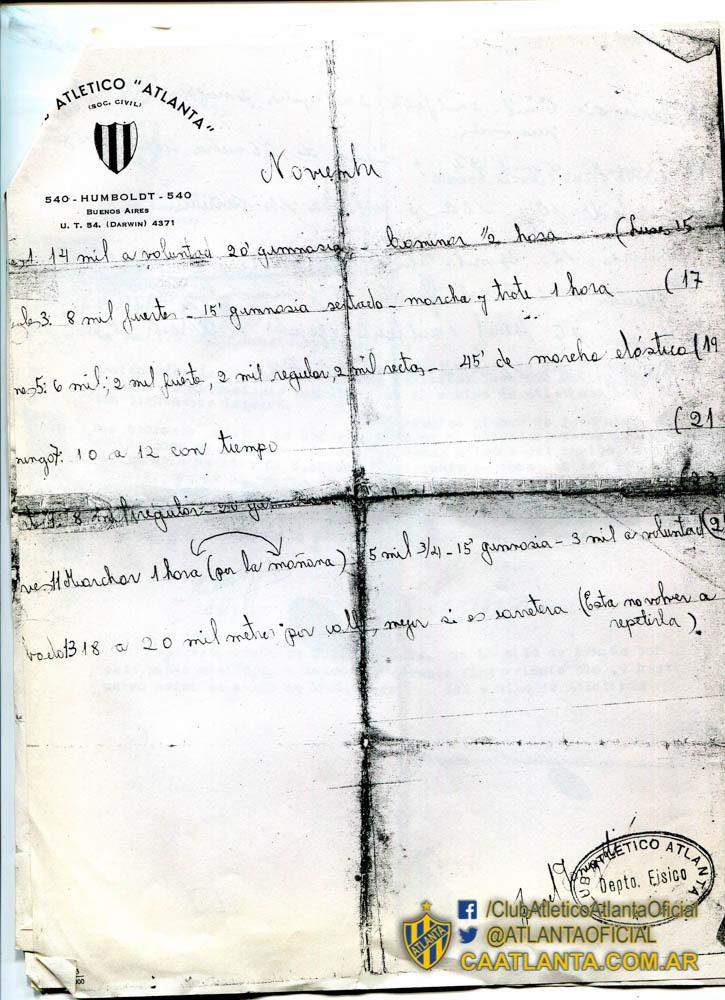 ATLETICO "ATLANTA"
(SOC. CIVIL)
540 - HUMBOLDT - 540
BUENOS AIRES
U. T. 54. (DARWIN) 4371
Noviembre
1: 14 mil a voluntad 20' gimnasia - Caminar 1/2 hora (Lunes 15
les3: 8 mil fuertes - 15' gimnasia sentado - marcha y trote 1 hora (17
nes5: 6 mil; 2 mil fuerte, 2 mil regular, 2 mil rectas - 45' de marcha elástica (19
mingo7: 10 a 12 con tiempo (21
8 mil regular
ves11 Marchar 1 hora (por la mañana) 5 mil 3/4 - 15' gimnasia - 3 mil a voluntad (2
bado13 18 a 20 mil metros por calle, mejor si es carretera (Esta no volver a
repetirla)
UB ATLÉTICO ATLANTA
Depto. Físico
ATLANTA
/ClubAtleticoAtlantaOficial
@ATLANTAOFICIAL
CAATLANTA.COM.AR